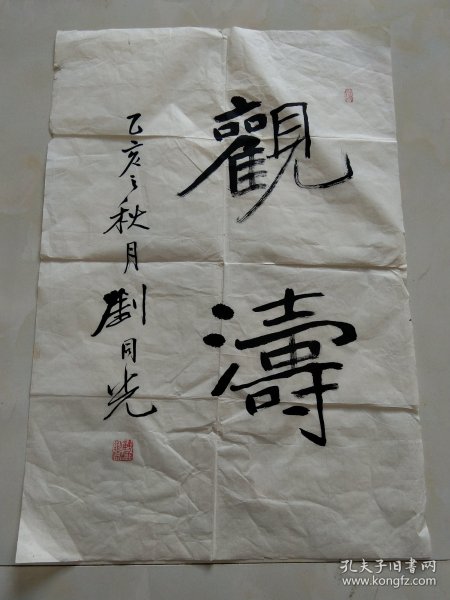 觀濤
乙亥之秋月劉同光
孔夫子旧书网
www.kongfz.com